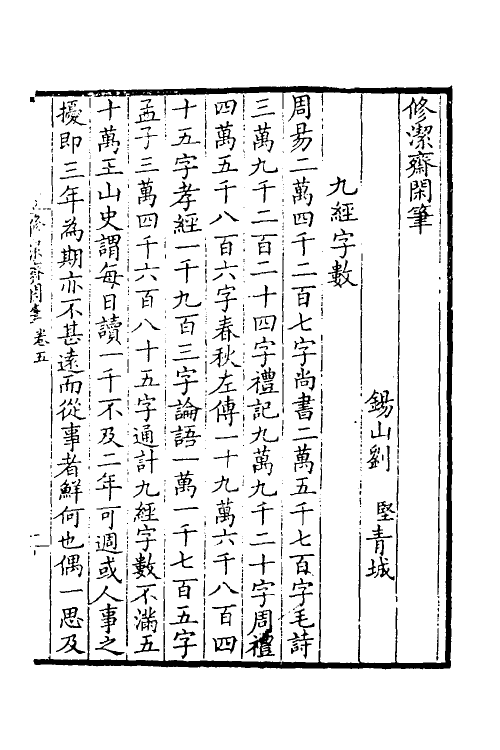 修潔齋閑筆
錫山劉 堅青城
九經字數
周易二萬四千二百七字尚書二萬五千七百字毛詩
三萬九千二百二十四字禮記九萬九千二十字周禮
四萬五千八百六字春秋左傳一十九萬六千八百四
十五字孝經一千九百三字論語一萬一千七百五字
孟子三萬四千六百八十五字通計九經字數不滿五
十萬王山史謂每日讀一千不及二年可週或人事之
擾即三年為期亦不甚遠而從事者鮮何也偶一思及
修潔齋閑筆 卷五 一